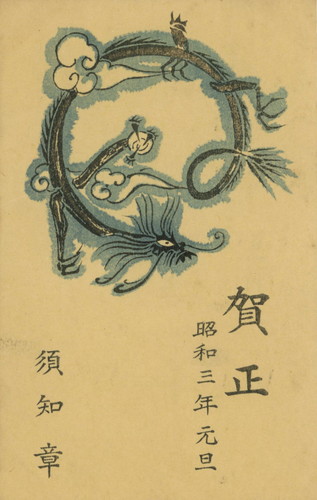 賀正
昭和三年元旦
須知章